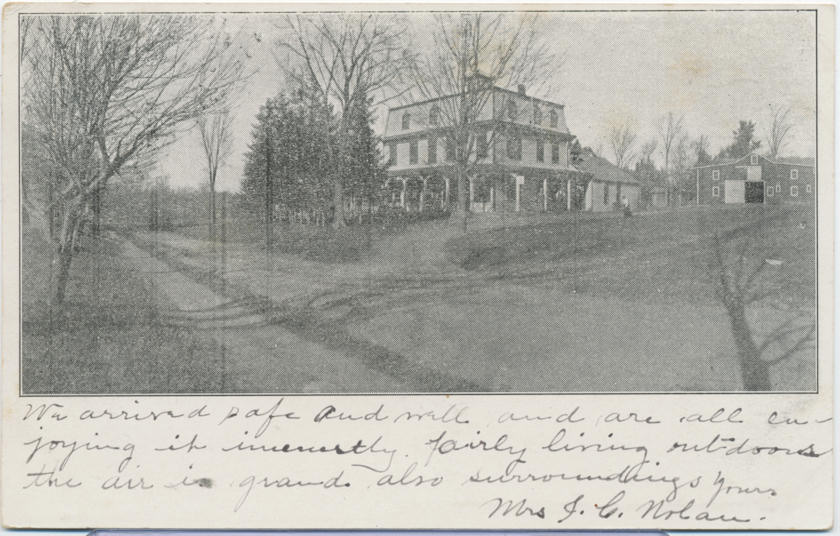 We arrived safe and well and are all en-
joying it immensely. fairly living outdoors
the air is grand also surroundings Yours
Mrs J. C. Nolan.